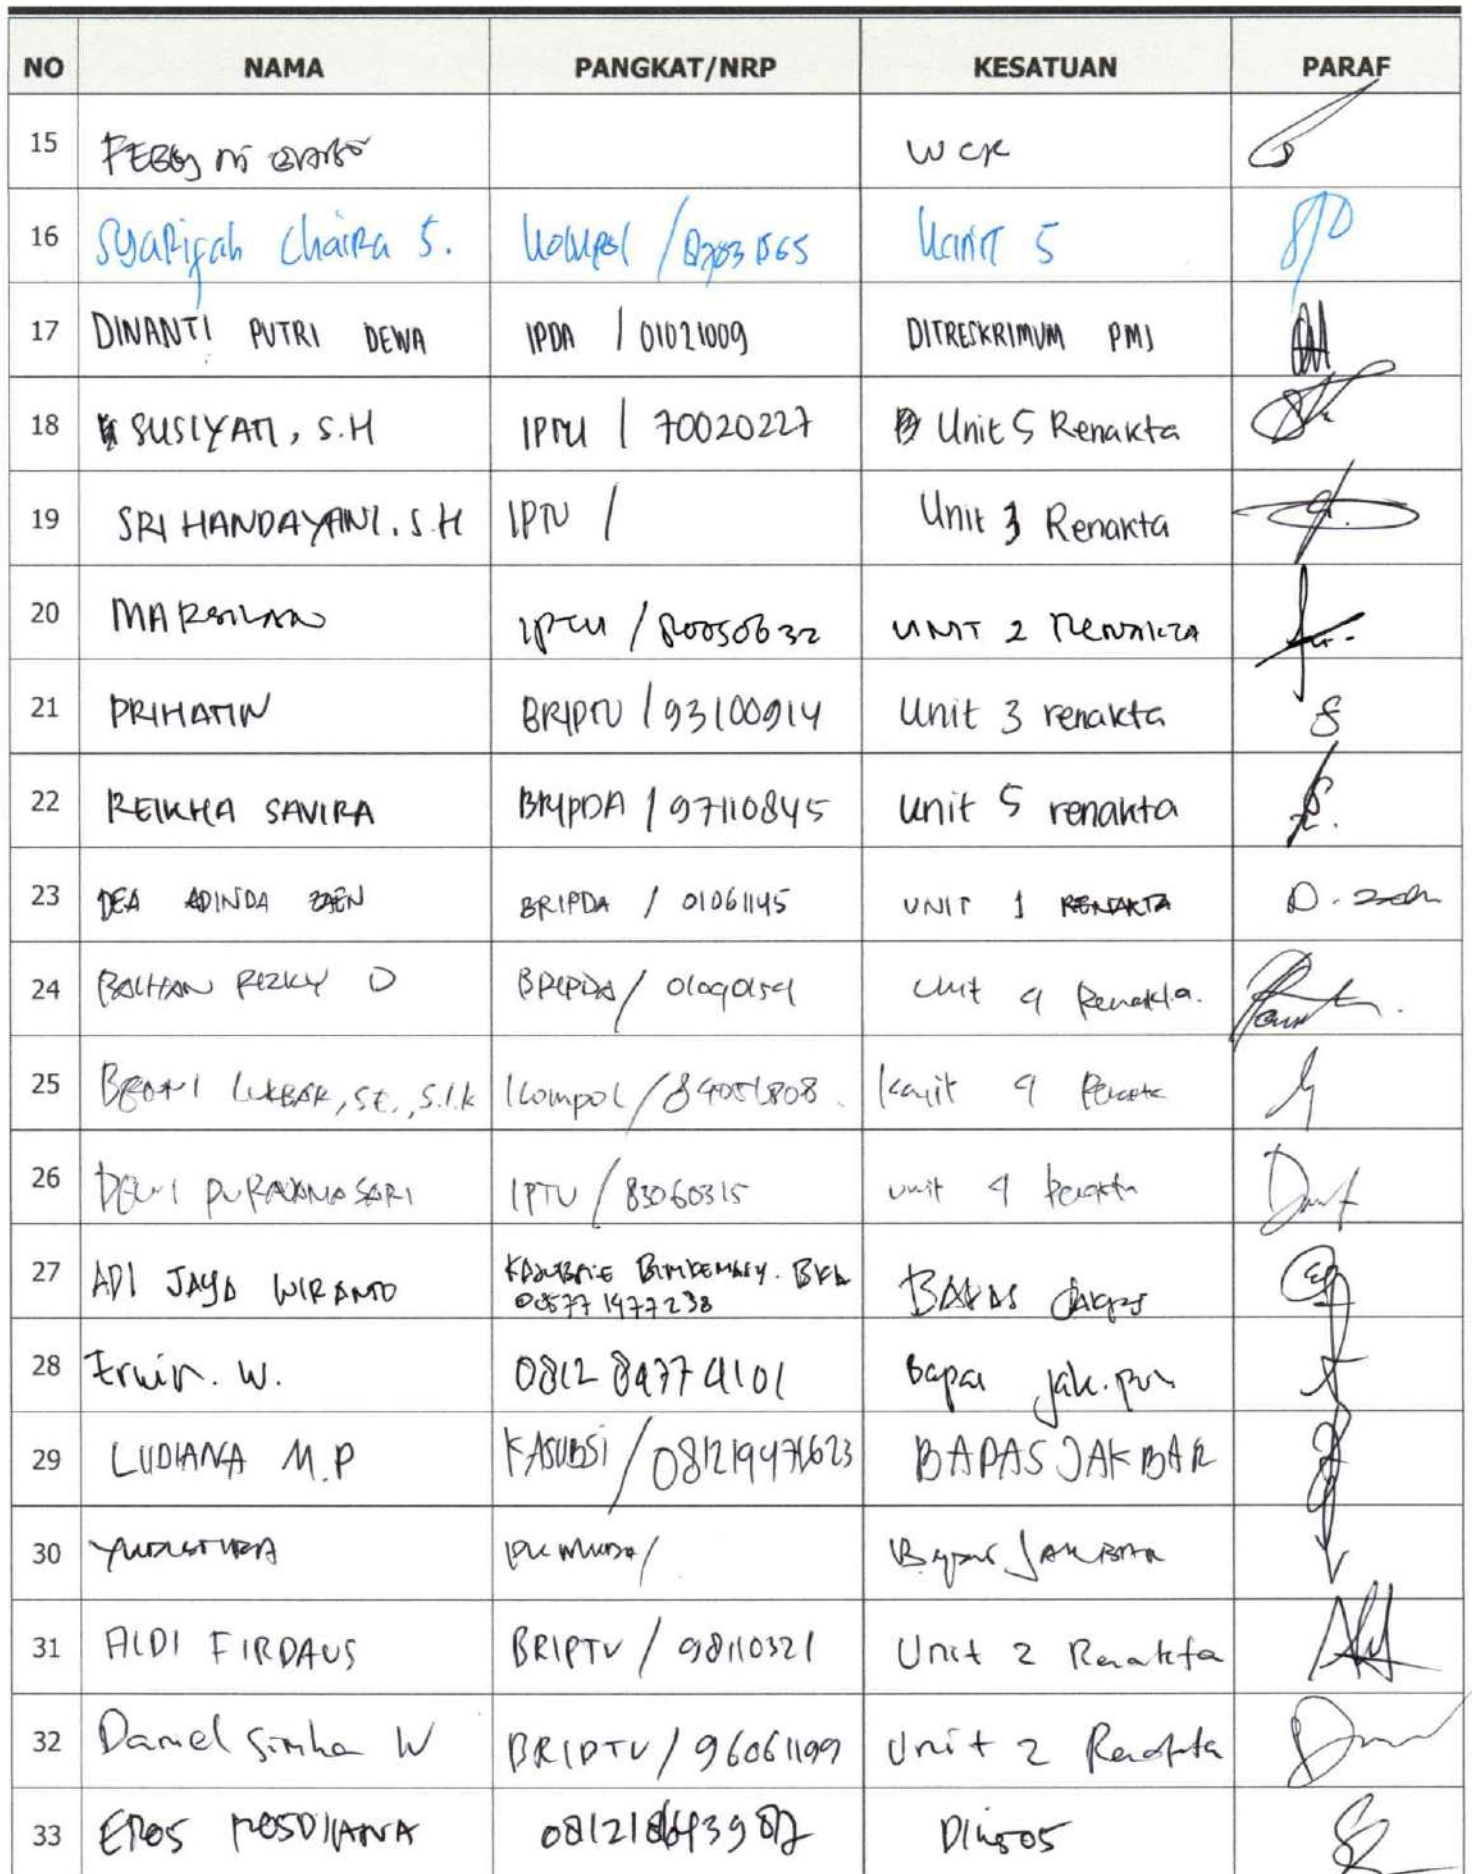 NO NAMA PANGKAT/NRP KESATUAN PARAF
15 WCK
16 Syarifah Chaira S. Kompol / Kanit 5
17 DINANTI PUTRI DEWA IPDA / 01021009 DITRESKRIMUM PMJ
18 SUSIYATI, S.H IPTU / 70020227 Unit 5 Renakta
19 SRI HANDAYANI. S.H IPTU / Unit 3 Renakta
20 IPTU / 80050632 UNIT 2 RENAKTA
21 PRIHATIN BRIPTU / 93100914 Unit 3 renakta
22 REIKHA SAVIRA BRIPDA / 97110845 Unit 5 renakta
23 DEA ADINDA ZAEN BRIPDA / 01061145 UNIT 1 RENAKTA
24 RIZKY D BRIPDA / Unit 4 Renakta.
25 , SE., S.I.K Kompol / Kanit 4
26 DEWI IPTU / 83060315 Unit 4 Renakta
27 ADI JAYA WIRANTO
BAPAS
28 Erwin. W. Bapas jak.pus
29 LUDIANA M.P KASUBSI / 081219471623 BAPAS JAKBAR
30 YUDISTIRA PK MUDA / Bapas JAKBAR
31 ALDI FIRDAUS BRIPTU / 98110321 Unit 2 Renakta
32 Daniel W BRIPTU / 96061199 Unit 2 Renakta
33 EROS ROSDIYANA DINSOS